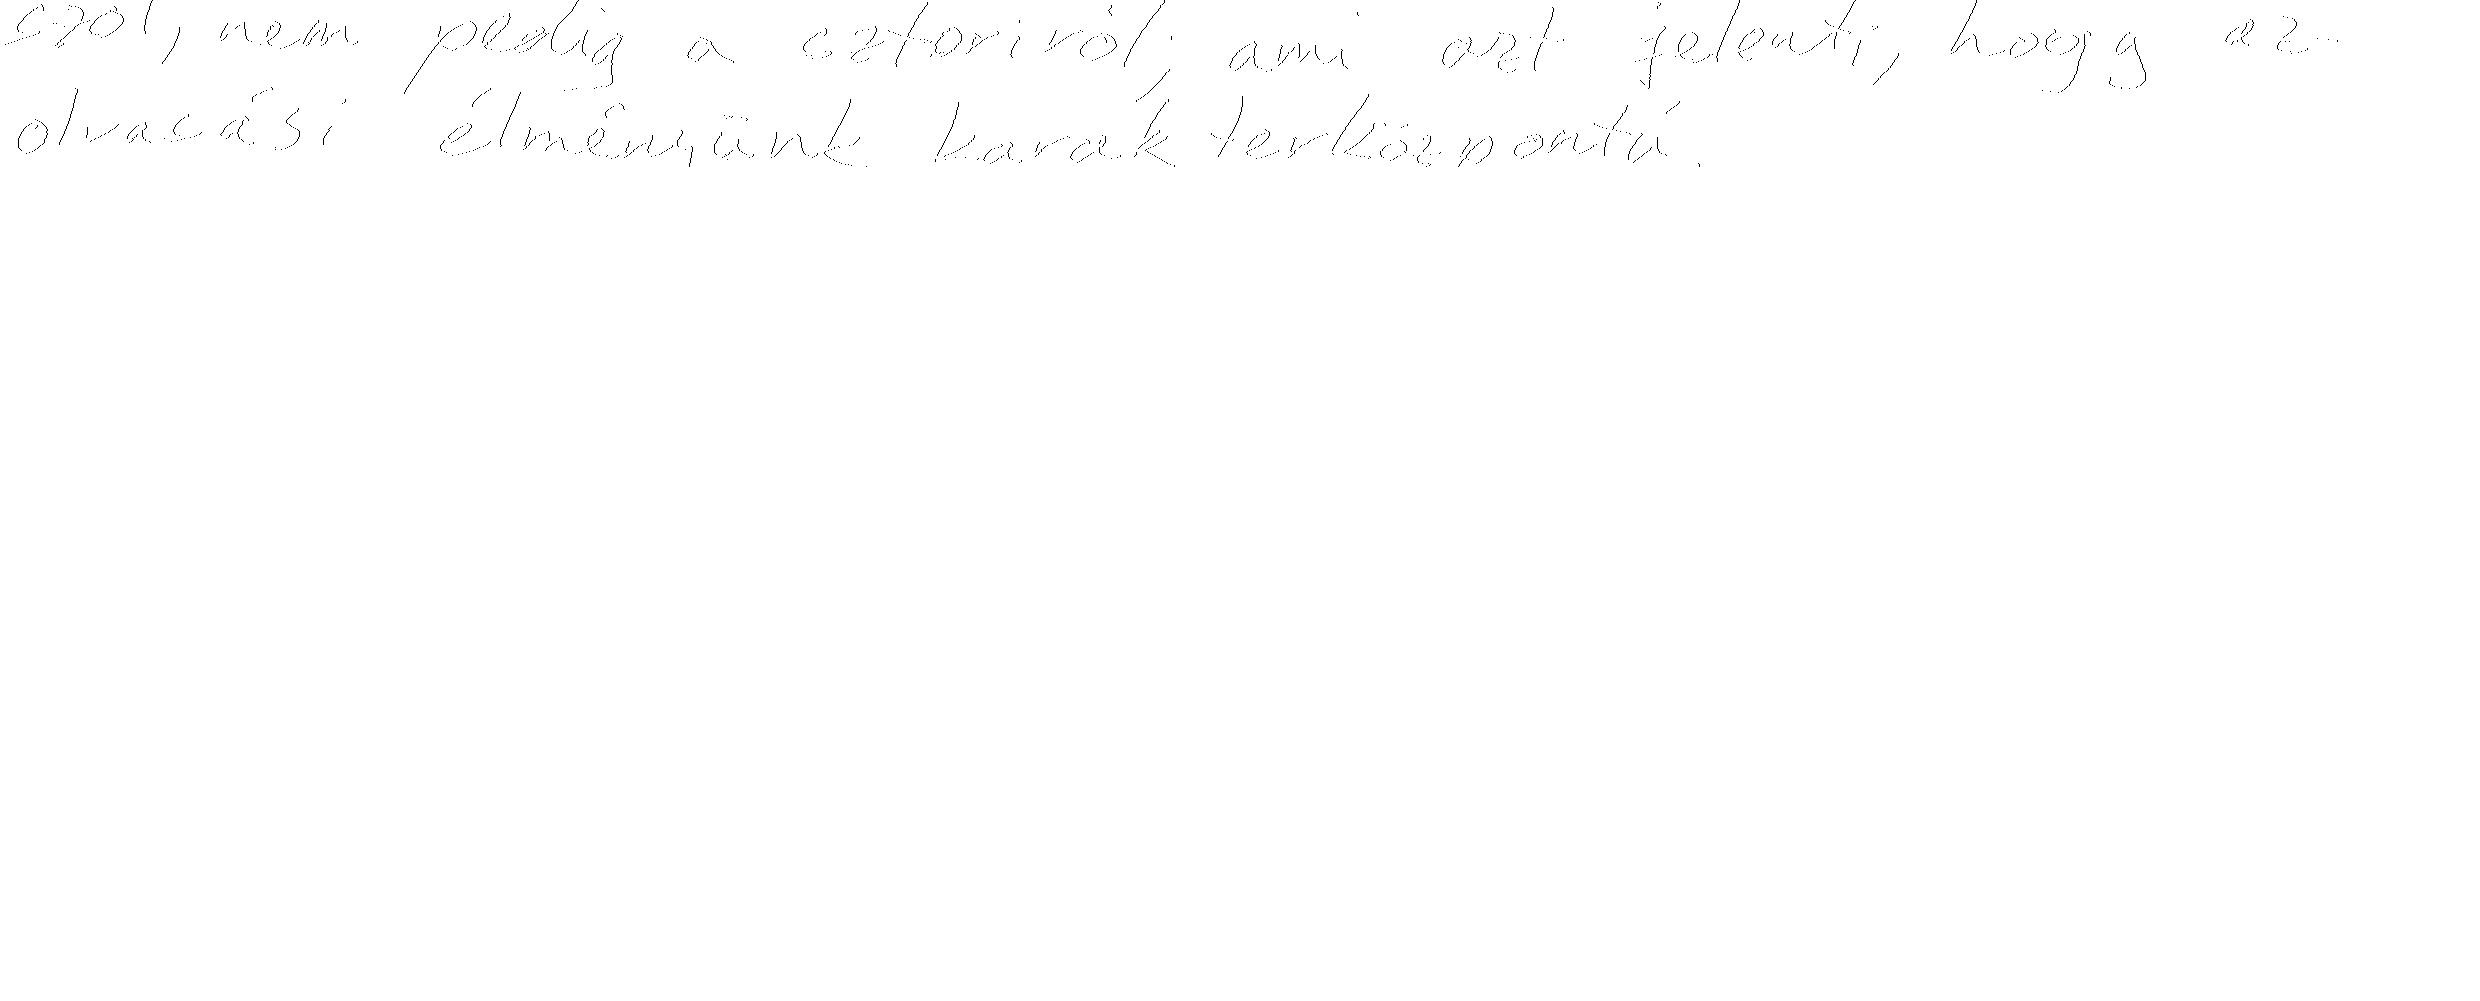 szól, nem pedig a sztoriról; ami azt jelenti, hogy az
olvasási élményünk karakterközpontú.